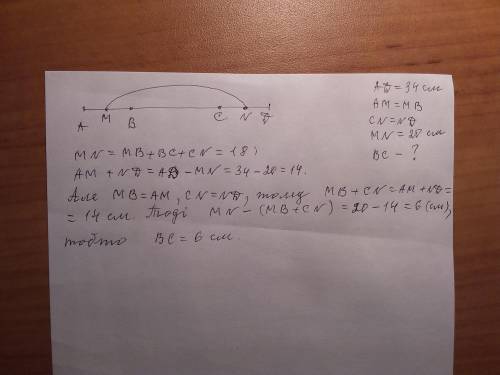 A M B C N D
AD = 34 см
AM = MB
CN = ND
MN = 20 см
BC - ?
MN = MB + BC + CN =
AM + ND = AD - MN = 34 - 20 = 14.
Але MB = AM, CN = ND, тому MB + CN = AM + ND =
= 14 см. Тоді MN - (MB + CN) = 20 - 14 = 6 (см),
тобто BC = 6 см.